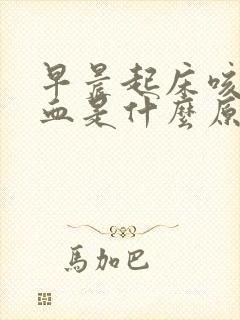 早晨起床咳
血是什麼原
馬加巴